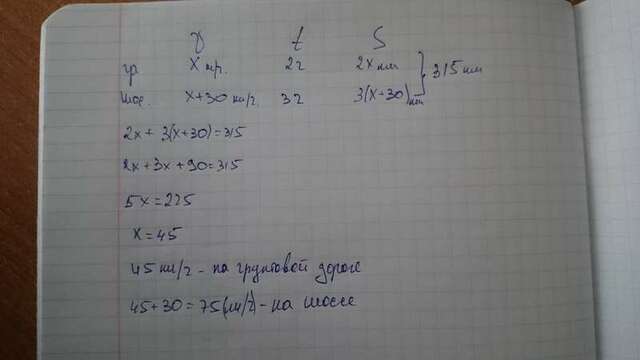 V t S
гр. x кр. 2ч 2x км
шос. x+30 км/ч 3ч 3(x+30) км } 315 км
2x + 3(x+30)=315
2x+3x+90=315
5x=225
x=45
45 км/ч - на грунтовой дороге
45+30=75(км/ч) - на шоссе